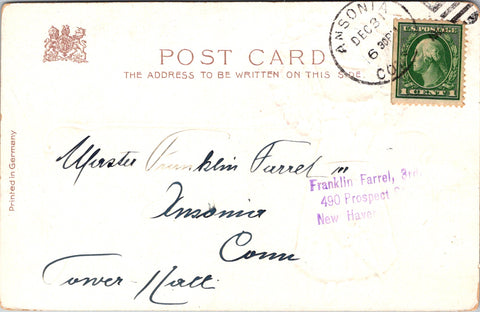 POST CARD
THE ADDRESS TO BE WRITTEN ON THIS SIDE.
ANSONIA
DEC 31
6 30 P
CO
U.S. POSTAGE
1 CENT 1
Printed in Germany
Master Franklin Farrel
Franklin Farrel, 3rd
490 Prospect
New Haven
Ansonia
Conn
Tower Hall